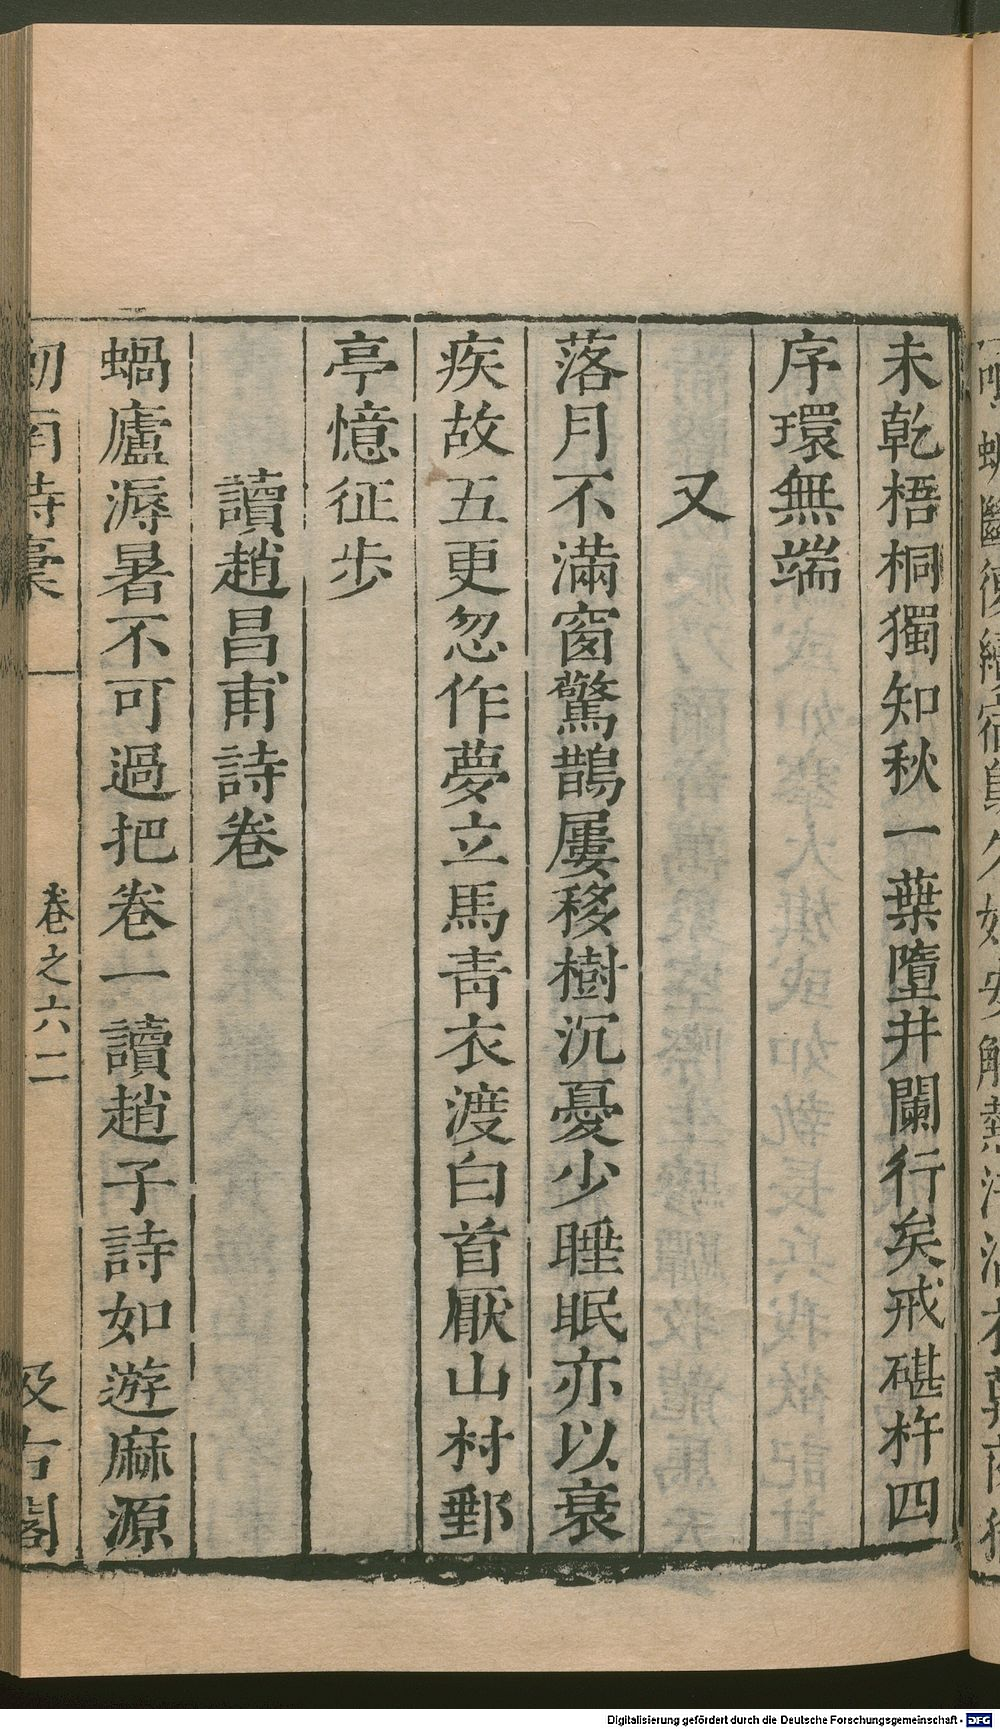 未乾梧桐獨知秋一葉墮井闌行矣戒碪杵四
序環無端
又
落月不滿窗驚鵲屢移樹沉憂少睡眠亦以衰
疾故五更忽作夢立馬靑衣渡白首厭山村郵
亭憶征步
讀趙昌甫詩卷
蝸廬溽暑不可過把卷一讀趙子詩如遊麻源
劒南詩稾
卷之六二
汲古閣
Digitalisierung gefördert durch die Deutsche Forschungsgemeinschaft - DFG